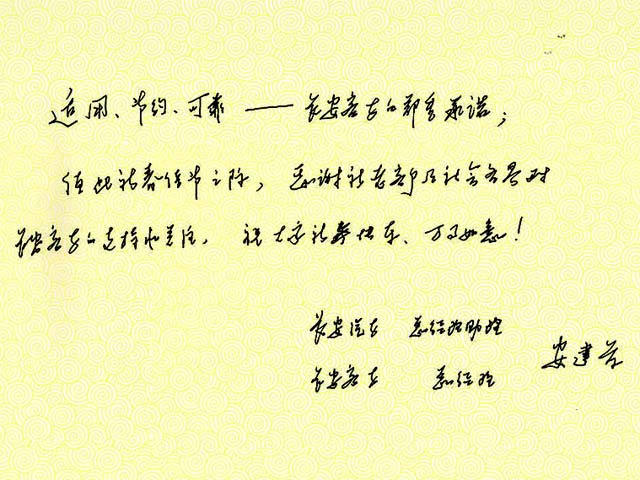 适用、节约、可靠 —— 长安客车的郑重承诺；
值此新春佳节之际，感谢新老部及社会各界对
长安客车的支持和关注，祝大家新春快乐、万事如意！
长安汽车 总经理助理
长安客车 总经理
安建